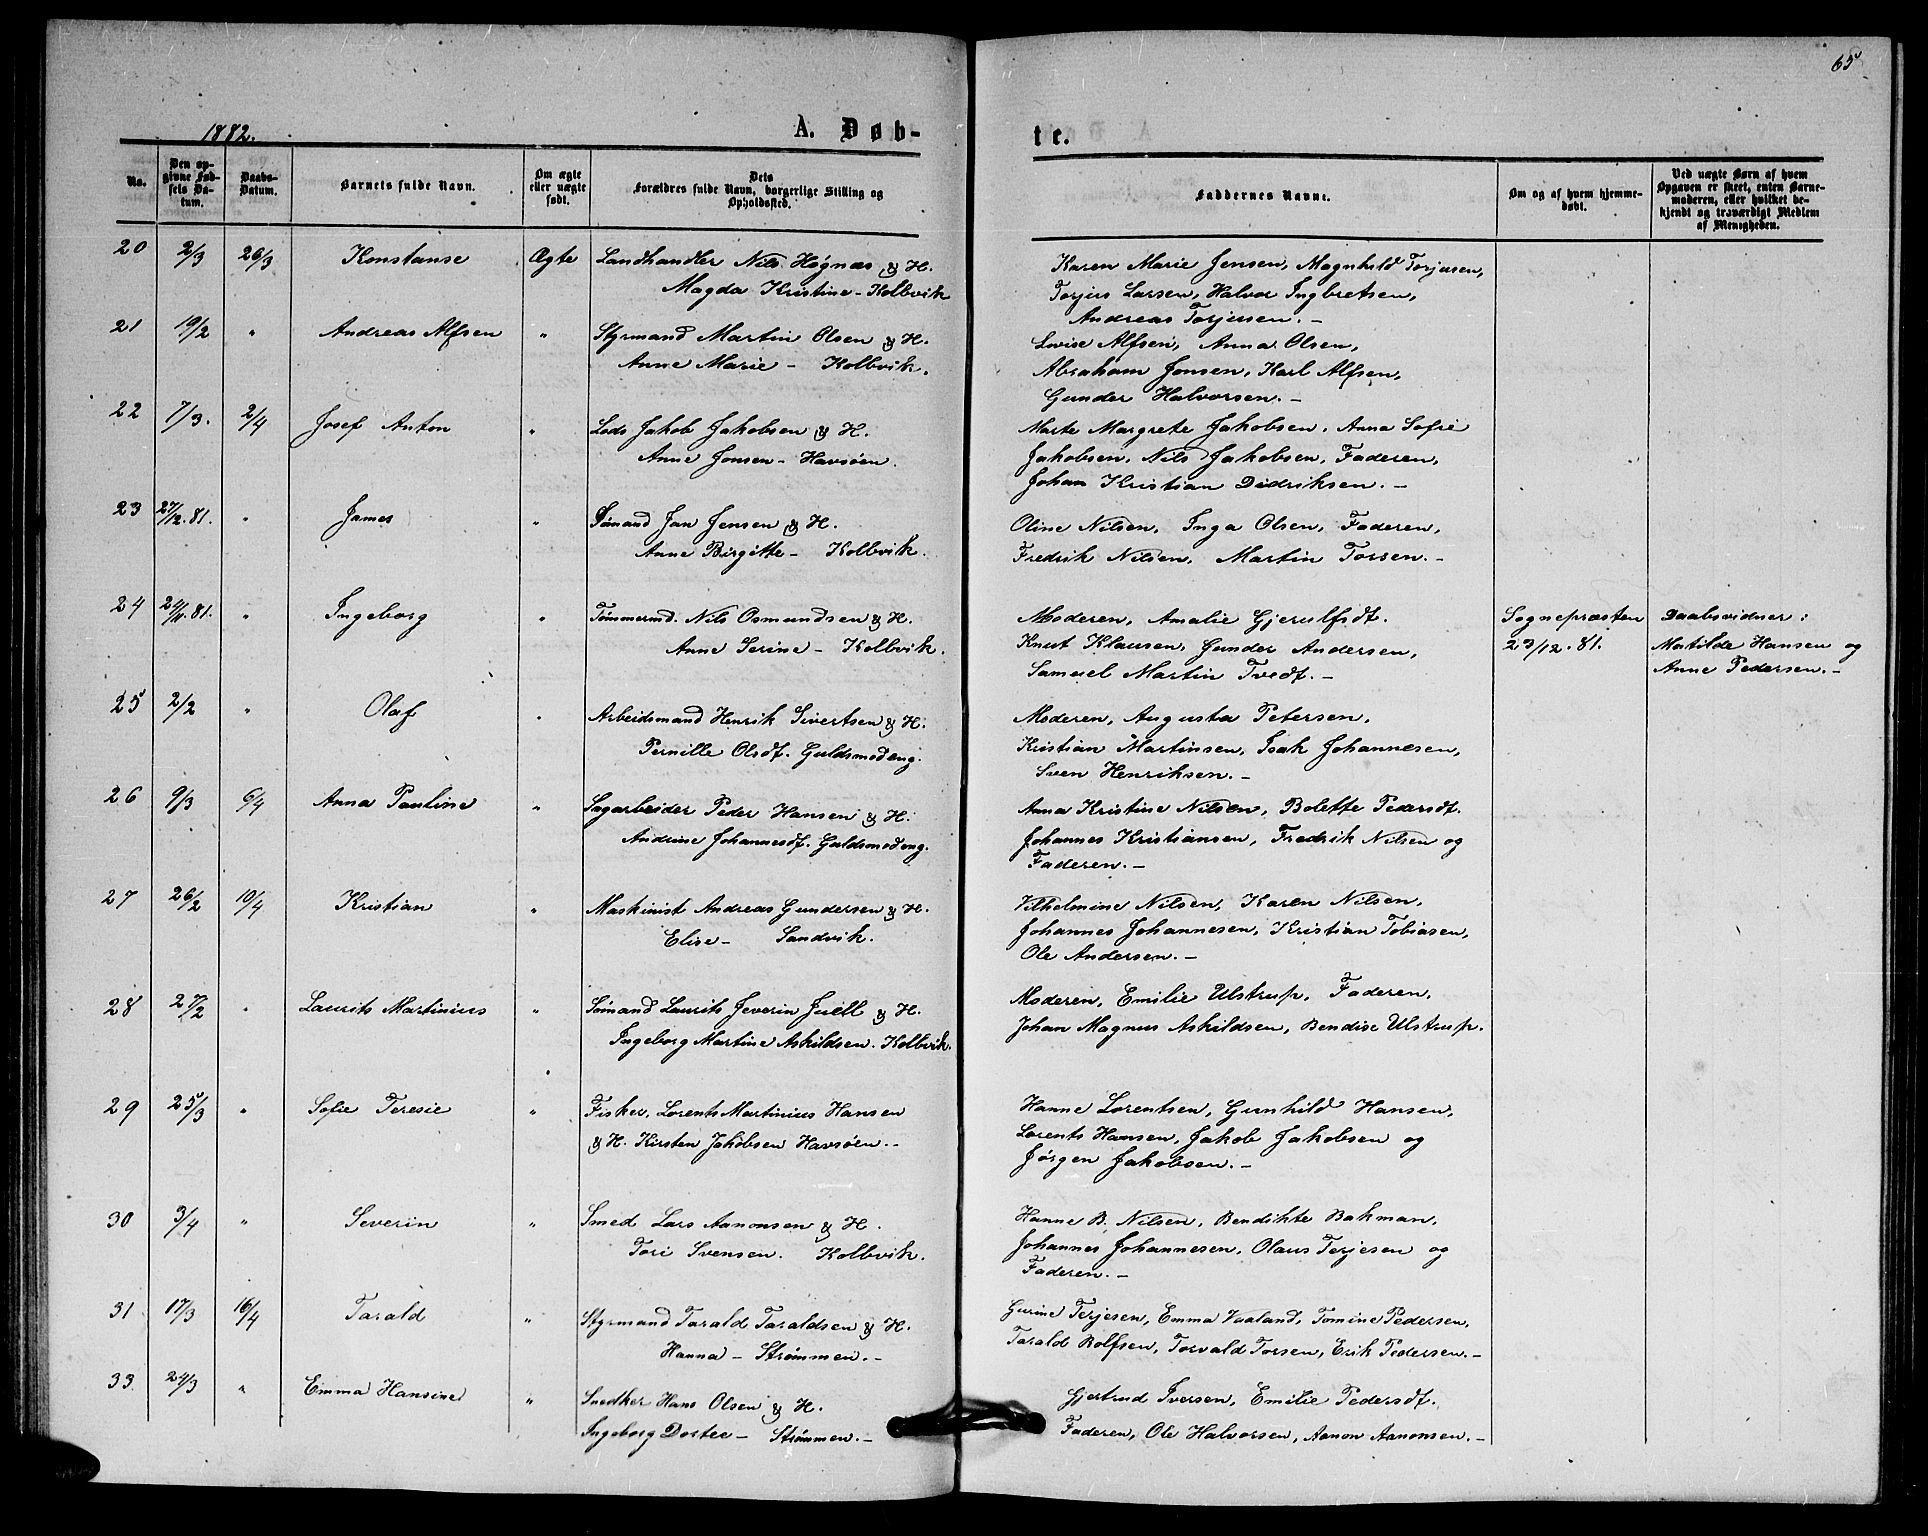 65
1882.
A. Døb-
te.
No.
Den op-
givne Fød-
sels Da-
tum.
Daabs-
Datum.
Barnets fulde Navn.
Om ægte
eller uægte
født.
Dets
Forældres fulde Navn, borgerlige Stilling og
Opholdssted.
Faddernes Navne.
Om og af hvem hjemme-
døbt.
Ved uægte Børn af hvem
Opgaven er skeet, enten Barne-
moderen, eller hvilket be-
kjendt og troværdigt Medlem
af Menigheden.
20 2/3 26/3 Konstanse Ægte Landhandler Nils Høgnæs & H.
Magda Kristine - Kolbvik
Karen Marie Jensen, Magnhild Torjusen,
Torjus Larsen, Halvor Ingbretsen,
Andreas Torjussen. -
21 19/2 " Andreas Alfsen " Styrmand Martin Olsen & H.
Anne Marie - Kolbvik.
Lovise Alfsen, Anna Olsen,
Abraham Jonsen, Karl Alfsen,
Gunder Halvorsen. -
22 7/3. 2/4 Josef Anton " Lods Jakob Jakobsen & H.
Anne Jonsen - Havsøen.
Marte Margrete Jakobsen, Anna Sofie
Jakobsen, Nils Jakobsen, Faderen,
Johan Kristian Didriksen. -
23 27/12.81. " James " Sømand Jan Jensen & H.
Anne Birgitte - Kolbvik.
Oline Nilsen, Inga Olsen, Faderen,
Fredrik Nilsen, Martin Torsen. -
24 24/11.81. " Ingeborg " Tømmermd. Nils Osmundsen & H.
Anne Serine - Kolbvik.
Moderen, Amalie Gjerulfsdt.
Knut Klausen, Gunder Andersen,
Samuel Martin Tvedt. -
Sognepræsten
23/12.81.
Daabsvidner:
Matilde Hansen og
Anne Pedersen. -
25 2/2 " Olaf " Arbeidsmand Henrik Sivertsen & H.
Pernille Olsdt. Guldsmedeng.
Moderen, Augusta Petersen,
Kristian Martinsen, Isak Johannesen,
Sven Henriksen. -
26 9/3 6/4 Anna Pauline " Sagarbeider Peder Hansen & H.
Andrine Johannesdt. Guldsmedeng.
Anna Kristine Nilsen, Bolette Pedersdt.
Johannes Kristiansen, Fredrik Nilsen og
Faderen. -
27 26/2 10/4 Kristian " Maskinist Andreas Gundersen & H.
Elise - Sandvik.
Vilhelmine Nilsen, Karen Nilsen,
Johannes Johannesen, Kristian Tobiasen,
Ole Andersen. -
28 27/2 " Laurits Martinius " Sømand Laurits Severin Juell & H.
Ingeborg Martine Askildsen. Kolbvik.
Moderen, Emilie Ulstrup, Faderen,
Johan Magnus Askildsen, Bendise Ulstrup.
29 25/3 " Sofie Teresie " Fisker, Lorents Martinius Hansen
& H. Kirsten Jakobsen Havsøen. -
Hanne Lorentsen, Gunhild Hansen,
Lorents Hansen, Jakob Jakobsen og
Jørgen Jakobsen. -
30 3/4 " Severin " Smed Lars Aanonsen & H.
Tori Svensen. Kolbvik.
Hanne B. Nilsen, Bendikte Bakman,
Johannes Johannesen, Olaus Terjesen og
Faderen. -
31 17/3 16/4 Tarald " Styrmand Tarald Taraldsen & H.
Hanna - Strømmen. -
Gurine Terjesen, Emma Vaaland, Tomine Pedersen,
Tarald Rolfsen, Torvald Torsen, Erik Pedersen. -
33 24/3 " Emma Hansine " Snedker Hans Olsen & H.
Ingeborg Dortee - Strømmen. -
Gjertrud Iversen, Emilie Pedersdt.
Faderen, Ole Halvorsen, Aanon Aanonsen. -